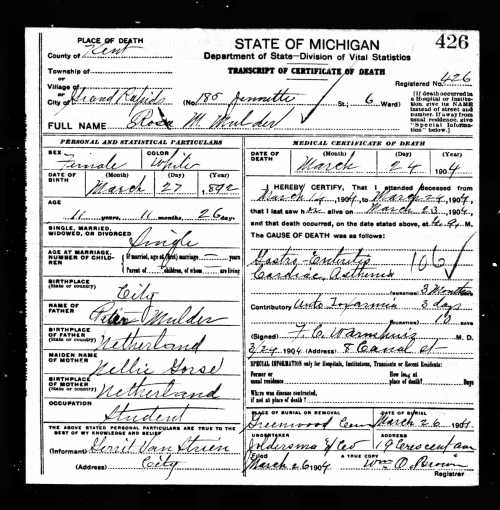 PLACE OF DEATH
County of Kent
Township of
Village of
City of Grand Rapids
STATE OF MICHIGAN
Department of State—Division of Vital Statistics
TRANSCRIPT OF CERTIFICATE OF DEATH
426
Registered No. 426
(No. 185 Jennette St.; 6 Ward)
[If death occurred in a Hospital or Institution, give its NAME instead of street and number. If away from usual residence, give "Special Information" below.]
FULL NAME Rosa M. Mulder
PERSONAL AND STATISTICAL PARTICULARS
SEX Female
COLOR White
DATE OF BIRTH March 27, 1892
(Month) (Day) (Year)
AGE
11 years, 11 months, 26 days
SINGLE, MARRIED, WIDOWED, OR DIVORCED Single
AGE AT MARRIAGE, NUMBER OF CHILDREN
If married, age at (first) marriage — years
Parent of children, of whom are living
BIRTHPLACE (State or country) City
NAME OF FATHER Peter Mulder
BIRTHPLACE OF FATHER (State or country) Netherland
MAIDEN NAME OF MOTHER Nellie Gorse
BIRTHPLACE OF MOTHER (State or country) Netherland
OCCUPATION Student
THE ABOVE STATED PERSONAL PARTICULARS ARE TRUE TO THE BEST OF MY KNOWLEDGE AND BELIEF
(Informant) Gerrit Van Strien
(Address) City
MEDICAL CERTIFICATE OF DEATH
DATE OF DEATH March 24 1904
(Month) (Day) (Year)
I HEREBY CERTIFY, That I attended deceased from
March 1904, to March 24 1904,
that I last saw h er alive on March 23 1904,
and that death occurred, on the date stated above, at M.
The CAUSE OF DEATH was as follows:
Gastro-Enteritis 106
Cardiac Asthenia
(DURATION) 3 Months
Contributory Auto Toxaemia 3 days
(DURATION) DAYS
(Signed) F. C. Warnshuis M. D.
3/24 1904 (Address) 8 Canal st
SPECIAL INFORMATION only for Hospitals, Institutions, Transients or Recent Residents:
Former or usual residence
How long at place of death? Days
Where was disease contracted, if not at place of death?
PLACE OF BURIAL OR REMOVAL Greenwood Cem
DATE OF BURIAL March 26 1904
UNDERTAKER Joldersma & Co
ADDRESS 19 Crescent ave
Filed March 26 1904
A TRUE COPY
Wm O. Brown
Registrar